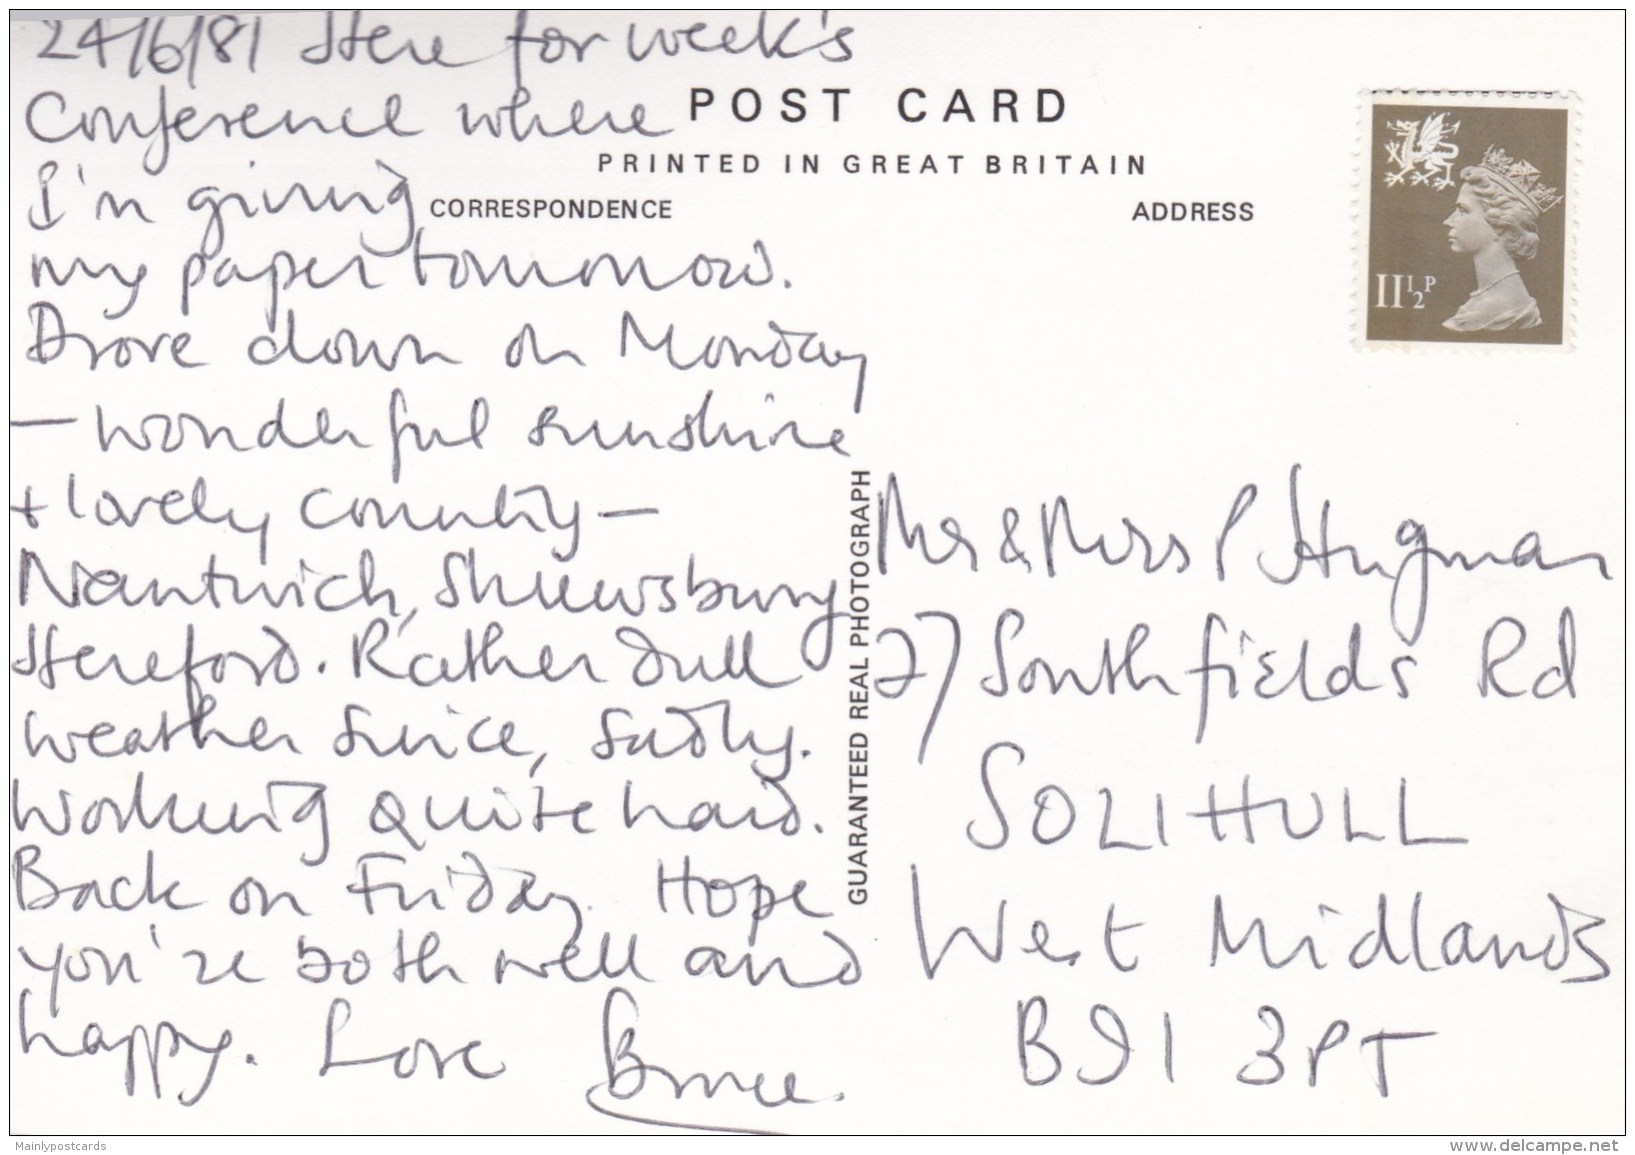 24/6/81 Here for week's
Conference where
I'm giving
my paper tomorrow.
Drove down on Monday
— wonderful sunshine
+ lovely country —
Nantwich, Shrewsbury
Hereford. Rather dull
weather since, sadly.
Working quite hard.
Back on Friday. Hope
you're both well and
happy. Love Bruce.
POST CARD
PRINTED IN GREAT BRITAIN
CORRESPONDENCE
ADDRESS
11½P
GUARANTEED REAL PHOTOGRAPH
Mr & Mrs P Hugman
27 Southfields Rd
SOLIHULL
West Midlands
B91 3PT
Mainlypostcards
www.delcampe.net